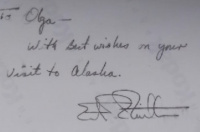 To Olga —
With best wishes on your
visit to Alaska.